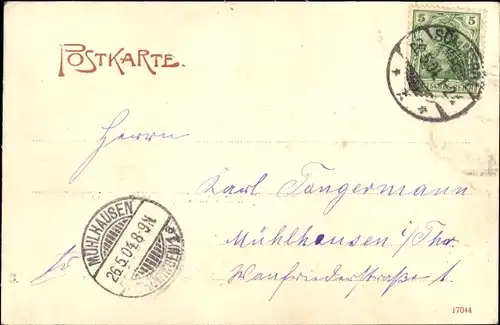 POSTKARTE.
5 5
Herrn
Karl Tongermann
Mühlhausen i/Thr.
Wanfriederstraße 1.
MÜHLHAUSEN
26.5.04.8-9N.
17044